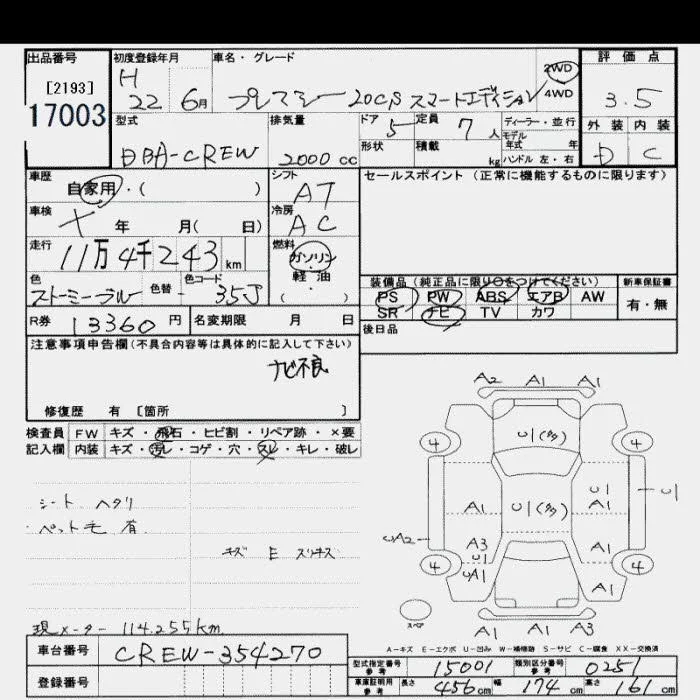 出品番号 初度登録年月 車名・グレード 2WD 評価点
[2193] H 22 6月 プレマシー 20CS スマートエディション 4WD 3.5
17003 型式 排気量 ドア 5 定員 7人 ディーラー・並行 外装 内装
モデル年式 年
DBA-CREW 2000cc 形状 積載 kg ハンドル 左・右 D C
車歴 自家用・( ) シフト AT セールスポイント (正常に機能するものに限ります)
車検 年 月( 日) 冷房 AC
走行 11万4千243km 燃料 ガソリン・軽油 ・( )
色 ストーミーブルー 色替 色コード 35J
装備品 (純正品に限り○をつけてください) 新車保証書
PS PW ABS エアB AW 有・無
SR ナビ TV カワ
R券 13360円 名変期限 月 日 後日品
注意事項申告欄(不具合内容等は具体的に記入して下さい)
ナビ不良
修復歴 有 [箇所 ]
検査員 FW キズ・飛石・ヒビ割・リペア跡・×要
記入欄 内装 キズ・汚レ・コゲ・穴・スレ・キレ・破レ
A2 A1 A1
4 U1(多) 4
シート ヘタリ
ペット毛 有
A1 U1(多) U1 A1 U1
キズ E スリキズ
UA2 A3 U1 A1
4 UA1 A1 4
スペア
A1 A1 A3
現メーター 114.255km
A-キズ E-エクボ U-凹み W-補修跡 S-サビ C-腐食 XX-交換済
車台番号 CREW-354270
型式指定番号 参考 15001 類別区分番号 参考 0251
登録番号
車庫証明用 参考 長さ 456cm 幅 174cm 高さ 161cm